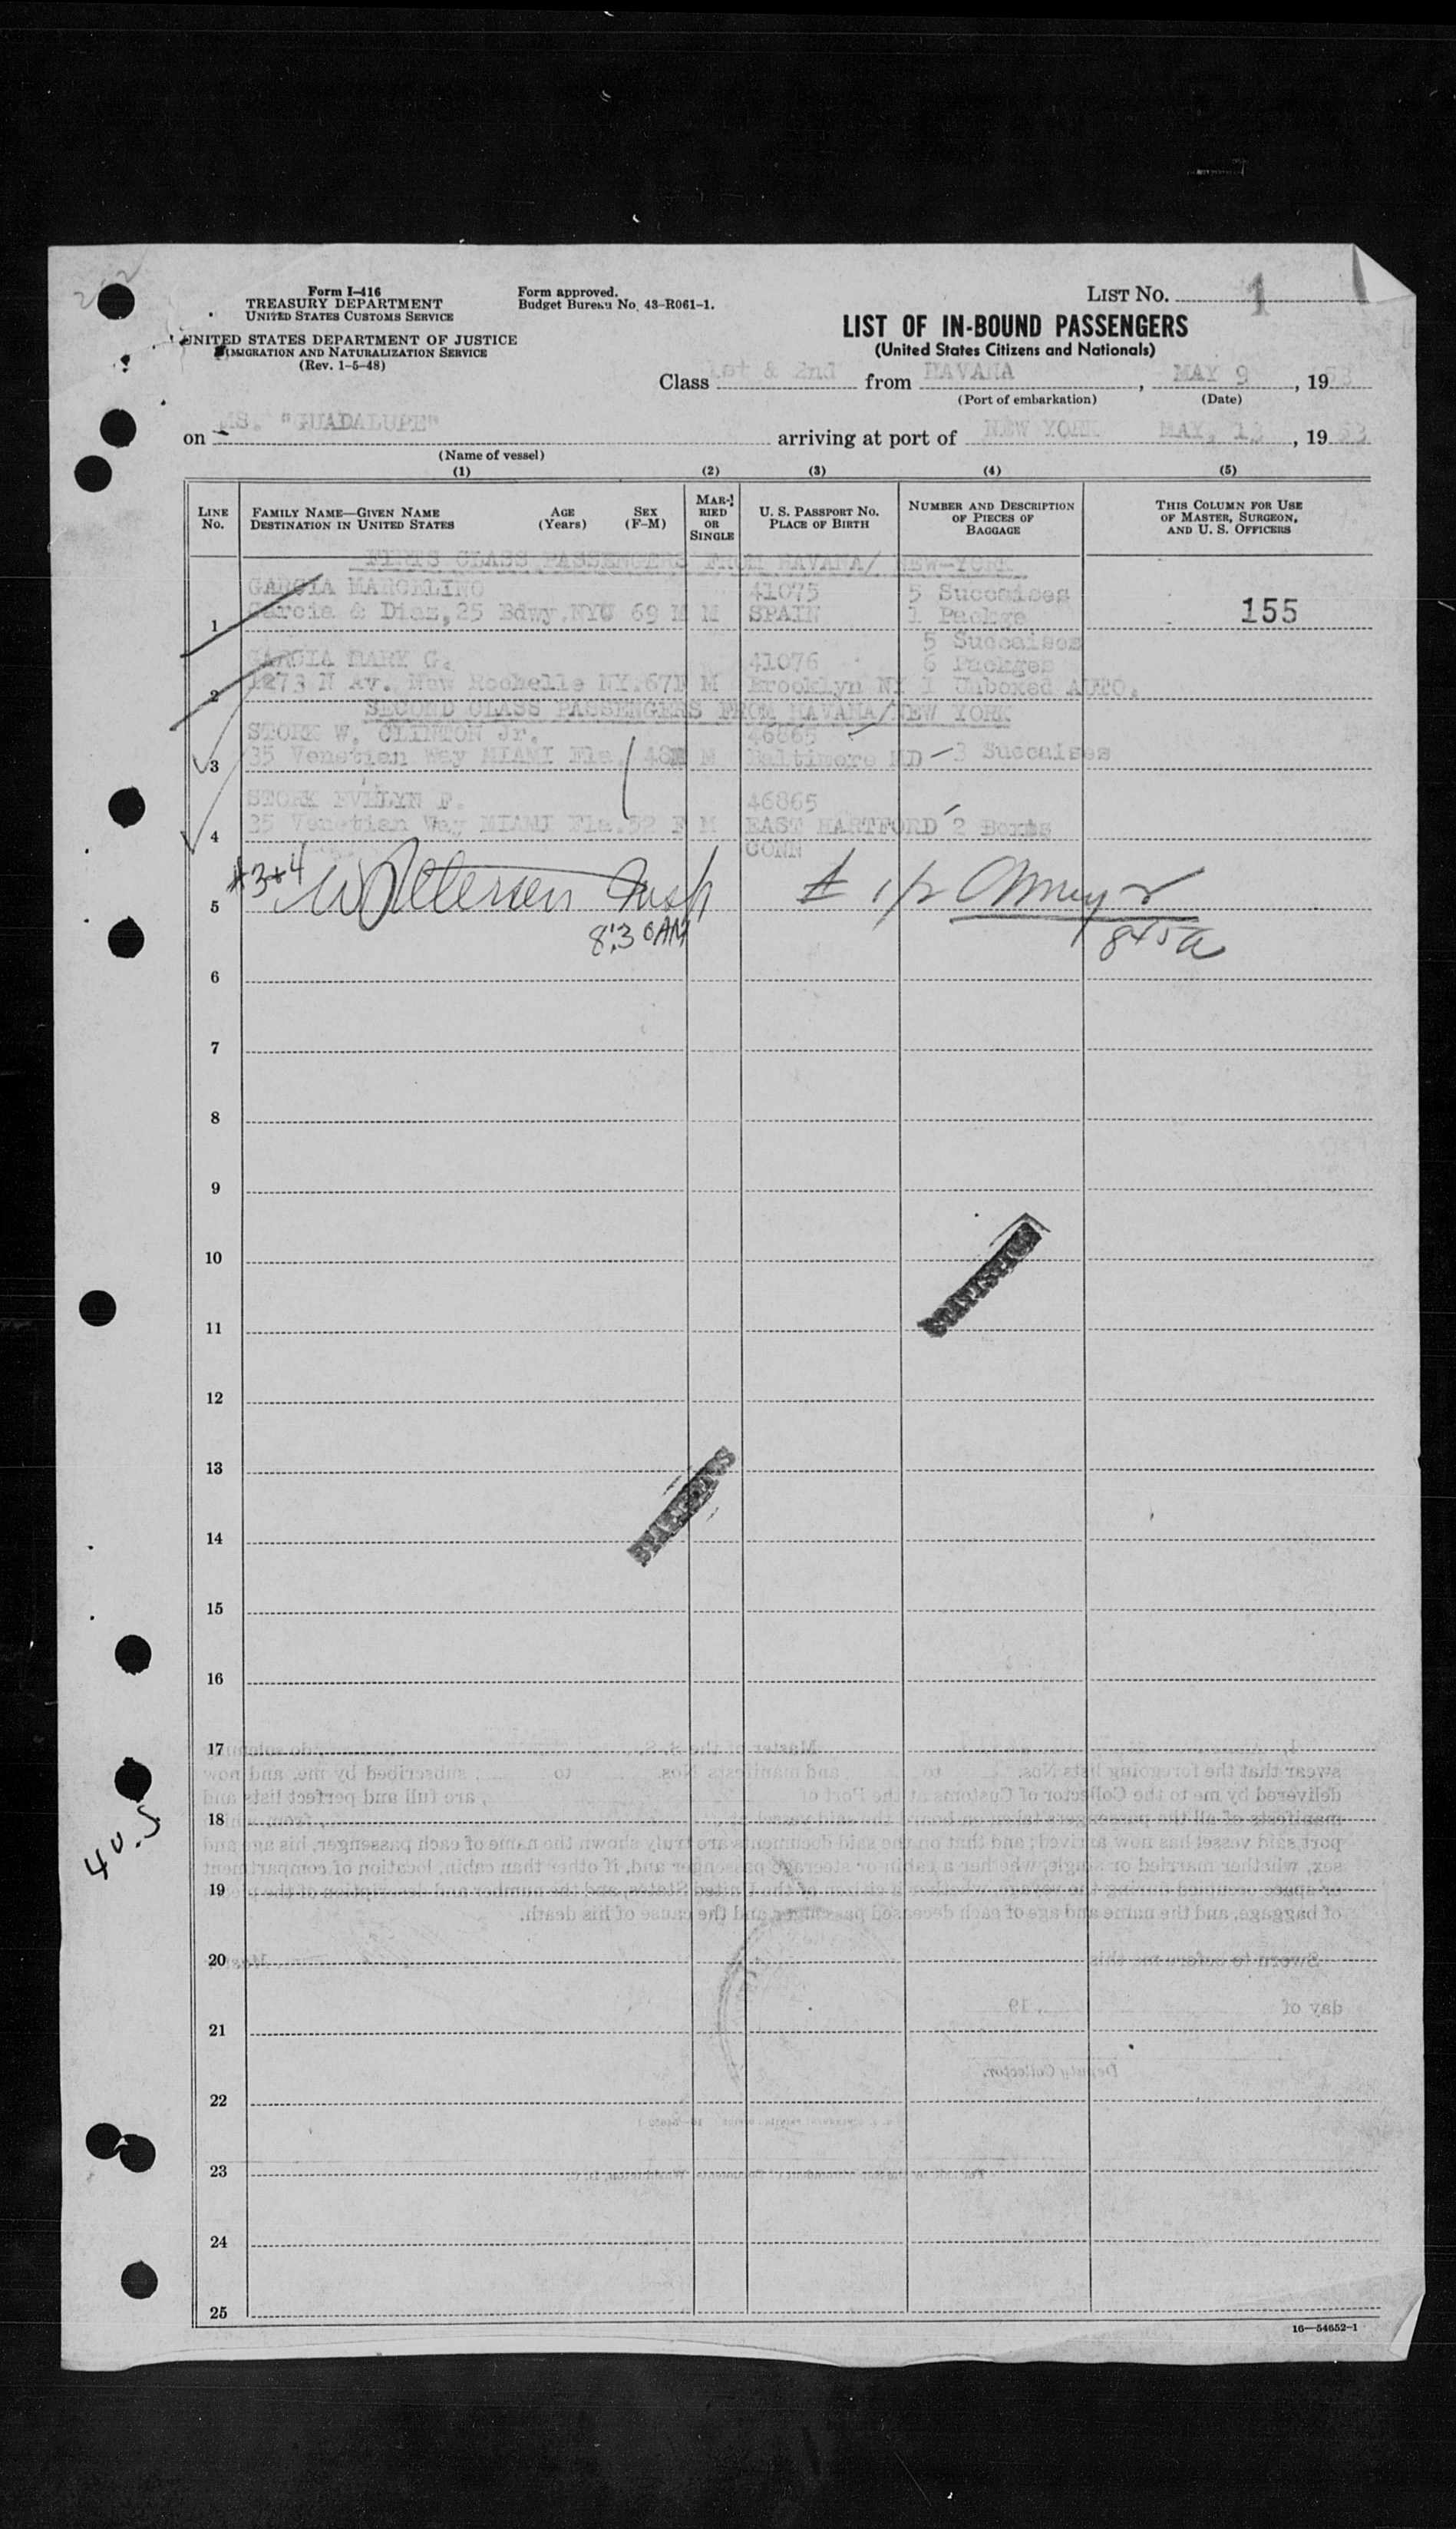 Form I-416
TREASURY DEPARTMENT
UNITED STATES CUSTOMS SERVICE
UNITED STATES DEPARTMENT OF JUSTICE
IMMIGRATION AND NATURALIZATION SERVICE
(Rev. 1-5-48)
Form approved.
Budget Bureau No. 43-R061-1.
LIST NO. 1
LIST OF IN-BOUND PASSENGERS
(United States Citizens and Nationals)
Class 1st & 2nd from HAVANA, MAY 9, 1953
(Port of embarkation) (Date)
on MS. "GUADALUPE" arriving at port of NEW YORK MAY, 13, 1953
(Name of vessel)
(1) (2) (3) (4) (5)
LINE No. FAMILY NAME—GIVEN NAME DESTINATION IN UNITED STATES AGE (Years) SEX (F-M) MARRIED OR SINGLE U. S. PASSPORT NO. PLACE OF BIRTH NUMBER AND DESCRIPTION OF PIECES OF BAGGAGE THIS COLUMN FOR USE OF MASTER, SURGEON, AND U. S. OFFICERS
FIRTS CLASS PASSENGERS FROM HAVANA/ NEW-YORK
GARCIA MARCELINO 41075 5 Succaises
1 Garcia & Diaz, 25 Bdwy.NYC 69 M M SPAIN 1 Packge 155
5 Succaises
GARCIA MARY G. 41076 6 Packges
2 1273 N Av. New Rochelle NY.67F M Brooklyn NY 1 Unboxed AUTO.
SECOND CLASS PASSENGERS FROM HAVANA/NEW YORK
STORK W. CLINTON Jr. 46865
3 35 Venetian Way MIAMI Fla. 48M M Baltimore MD 3 Succaises
STORK EVELYN F. 46865
4 35 Venetian Way MIAMI Fla.52 F M EAST HARTFORD 2 Boxes
CONN
#3+4
5
8:30 AM
845a
6
7
8
9
10
11
12
13
14
15
16
17
18
19
20
21
22
23
24
25
40.5
16—54652-1